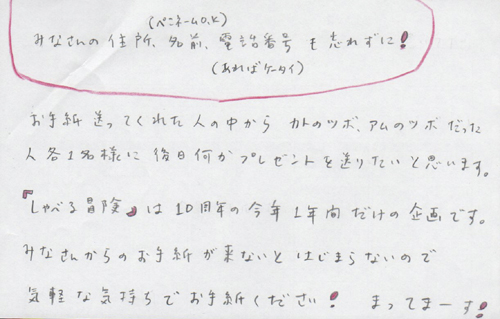 (ペンネームO.K)
みなさんの住所、名前、電話番号も忘れずに!
(あればケータイ)
お手紙送ってくれた人の中からカトのツボ、アムのツボだった
人各1名様に後日何かプレゼントを送りたいと思います。
『しゃべる冒険』は10周年の今年1年間だけの企画です。
みなさんからのお手紙が来ないとはじまらないので
気軽な気持ちでお手紙ください! まってまーす!